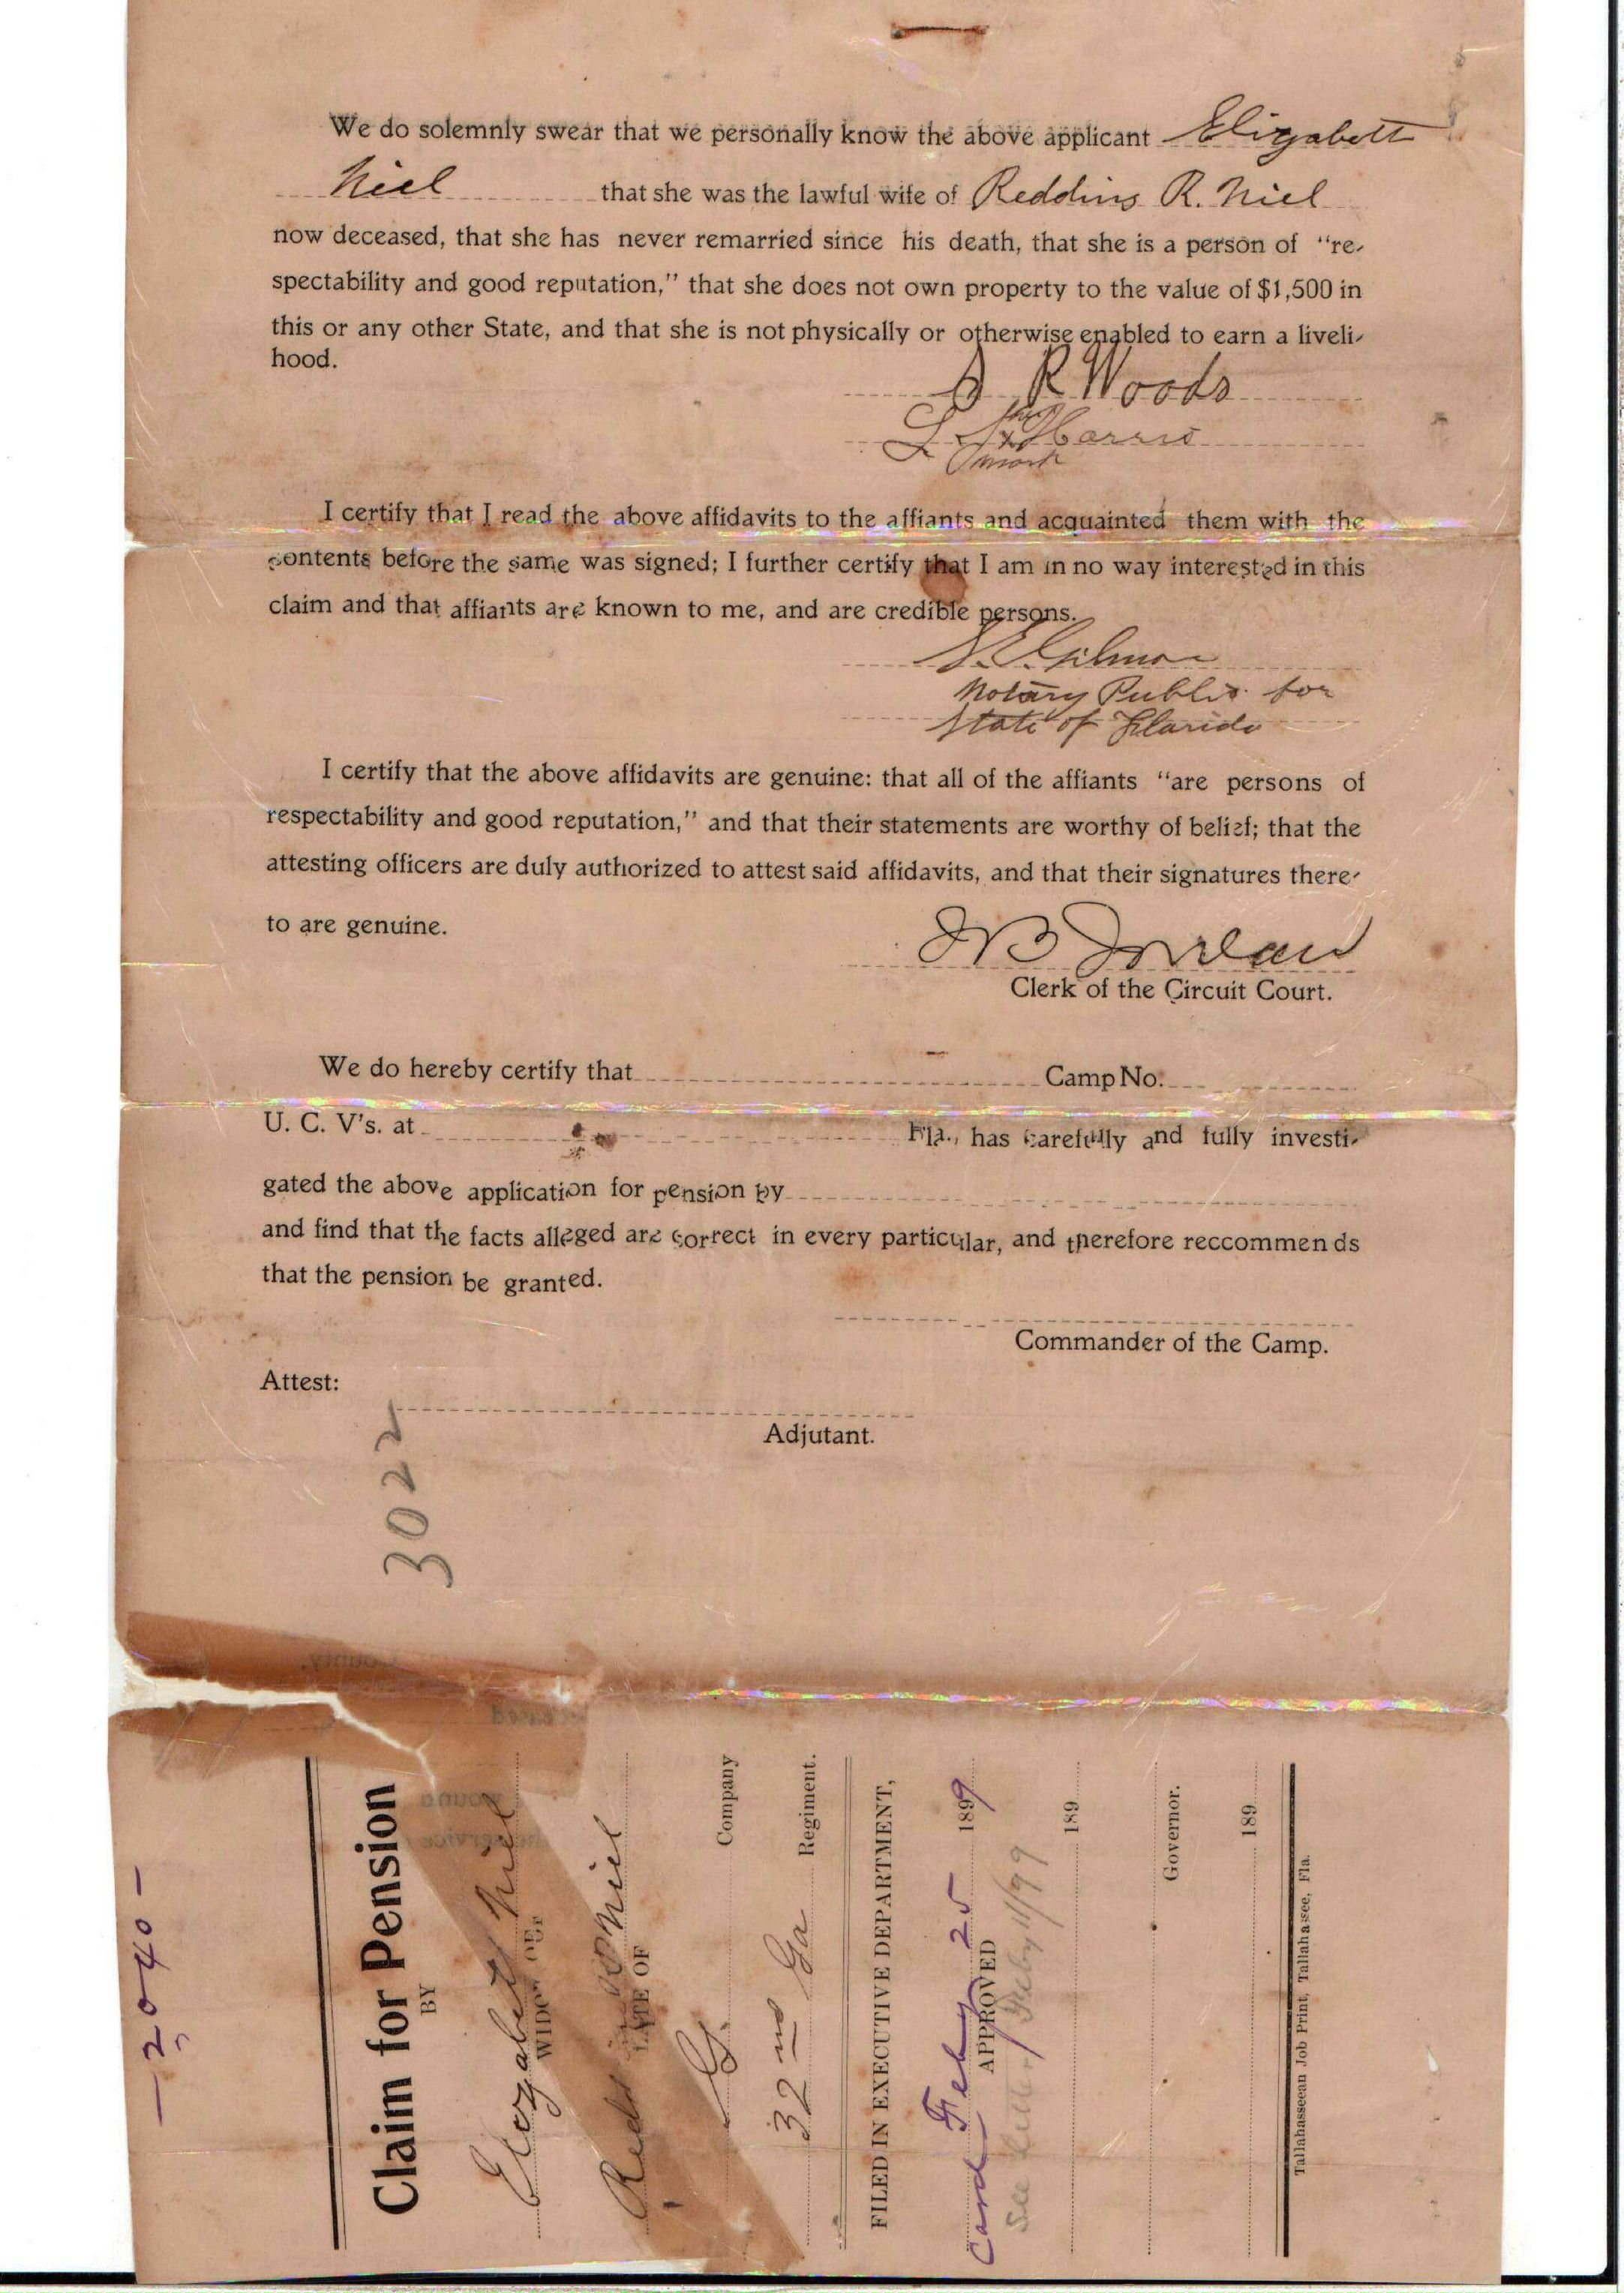 We do solemnly swear that we personally know the above applicant Elizabett
Niel that she was the lawful wife of Reddins R. Niel
now deceased, that she has never remarried since his death, that she is a person of "re-
spectability and good reputation," that she does not own property to the value of $1,500 in
this or any other State, and that she is not physically or otherwise enabled to earn a liveli-
hood.
S R Woods
L his x Harris
mark
I certify that I read the above affidavits to the affiants and acquainted them with the
contents before the same was signed; I further certify that I am in no way interested in this
claim and that affiants are known to me, and are credible persons.
S. E. Gilmor
Notary Public for
State of Florida
I certify that the above affidavits are genuine: that all of the affiants "are persons of
respectability and good reputation," and that their statements are worthy of belief; that the
attesting officers are duly authorized to attest said affidavits, and that their signatures there-
to are genuine.
Jordan
Clerk of the Circuit Court.
We do hereby certify that Camp No.
U. C. V's. at Fla., has carefully and fully investi-
gated the above application for pension by
and find that the facts alleged are correct in every particular, and therefore reccommends
that the pension be granted.
Commander of the Camp.
Attest:
Adjutant.
3022
—2040—
Claim for Pension
BY
Elizabett Niel
WIDOW OF
Niel
LATE OF
G. Company
32nd Ga Regiment.
FILED IN EXECUTIVE DEPARTMENT,
Card Feby 25 1899
APPROVED
See letter Feby 11/99
189
Governor.
189
Tallahasseean Job Print, Tallahassee, Fla.